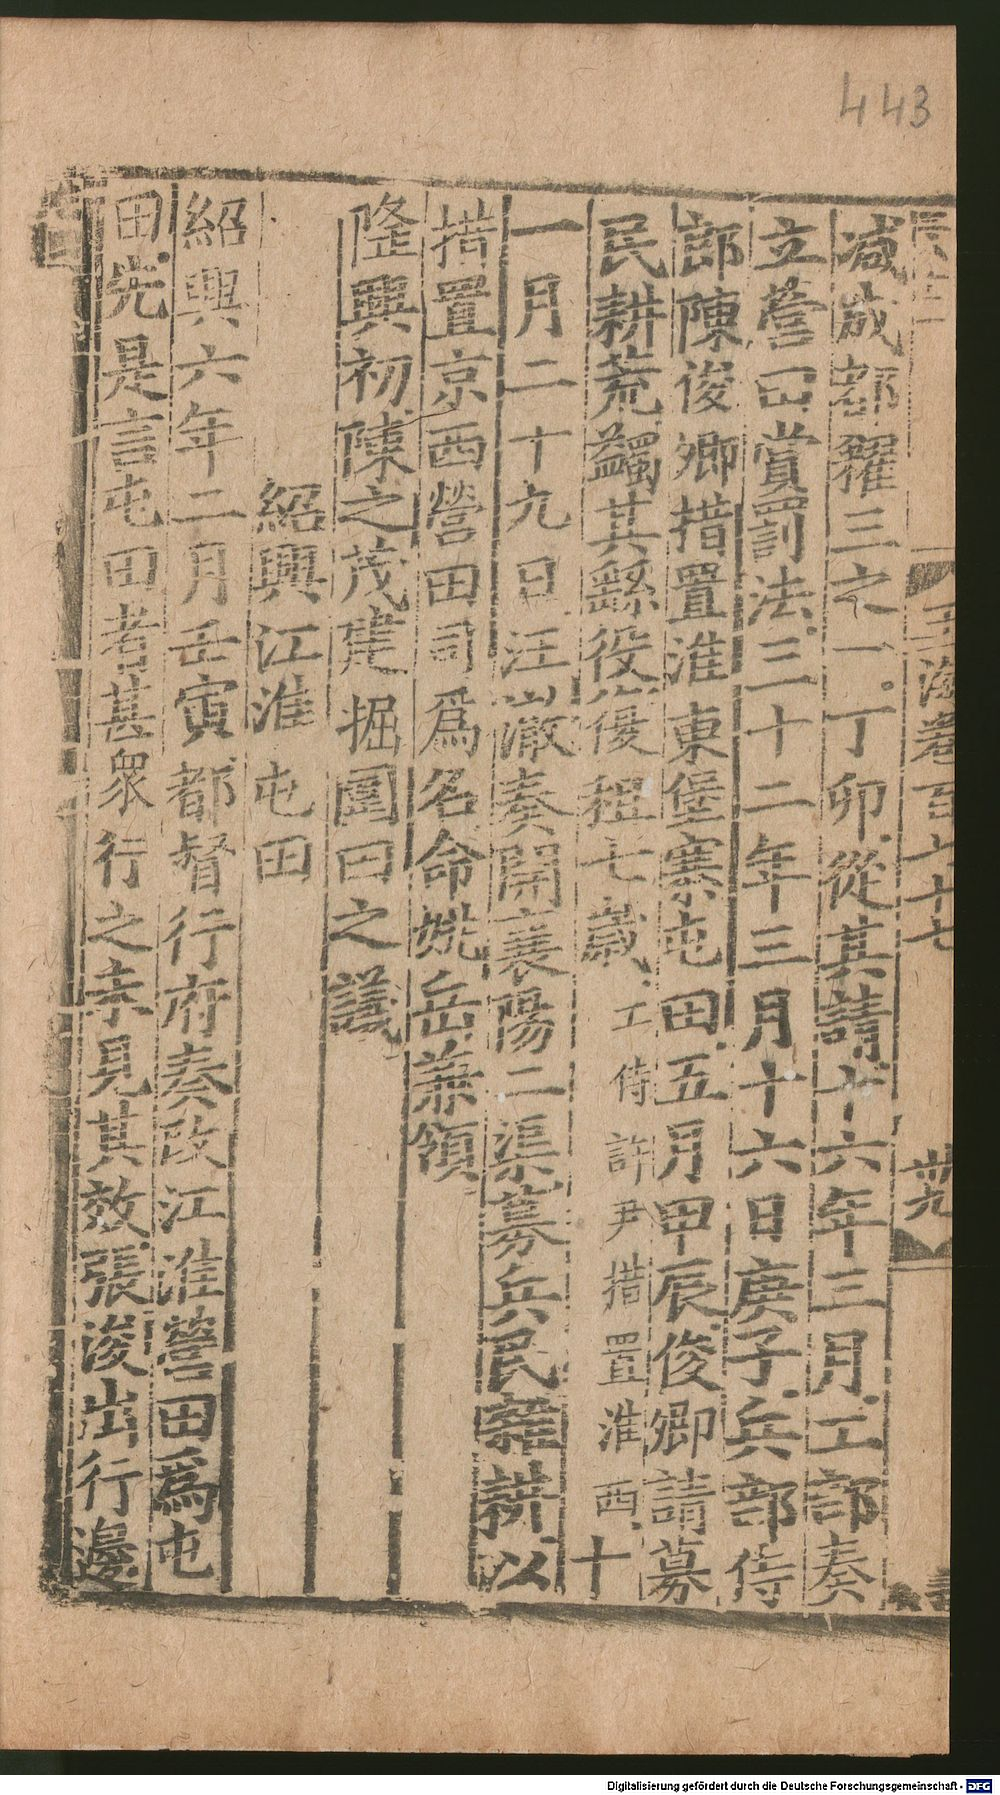 443
玉海卷百七十七
卅九
減成都糴三之一。丁卯從其請十六年三月工部奏
立營田賞罰法三十二年三月十六日庚子兵部侍
郎陳俊卿措置淮東堡寨屯田五月甲辰俊卿請募
民耕荒蠲其繇役優租七歲工侍許尹措置淮西十
一月二十九日汪澈奏開襄陽二渠募兵民雜耕以
措置京西營田司爲名命姚岳兼領
隆興初陳之茂建掘圍田之議
紹興江淮屯田
紹興六年二月壬寅都督行府奏改江淮營田爲屯
田先是言屯田者甚衆行之未見其效張浚出行邊
Digitalisierung gefördert durch die Deutsche Forschungsgemeinschaft - DFG